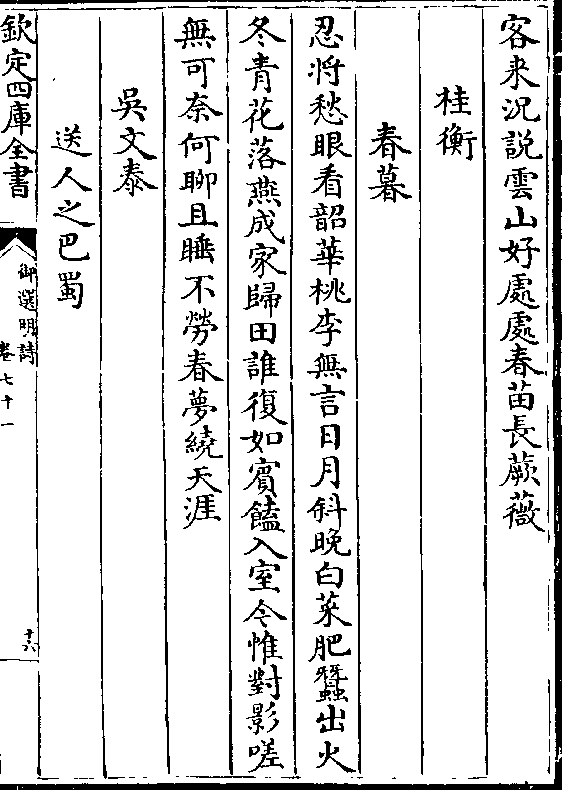 客来況説雲山好處處春苗長蕨薇
桂衡
春暮
忍將愁眼看韶華桃李無言日月斜晚白菜肥蠶出火
冬青花落燕成家歸田誰復如賓饁入室今惟對影嗟
無可奈何聊且睡不勞春夢繞天涯
吳文泰
送人之巴蜀
欽定四庫全書
御選明詩
卷七十一
十六